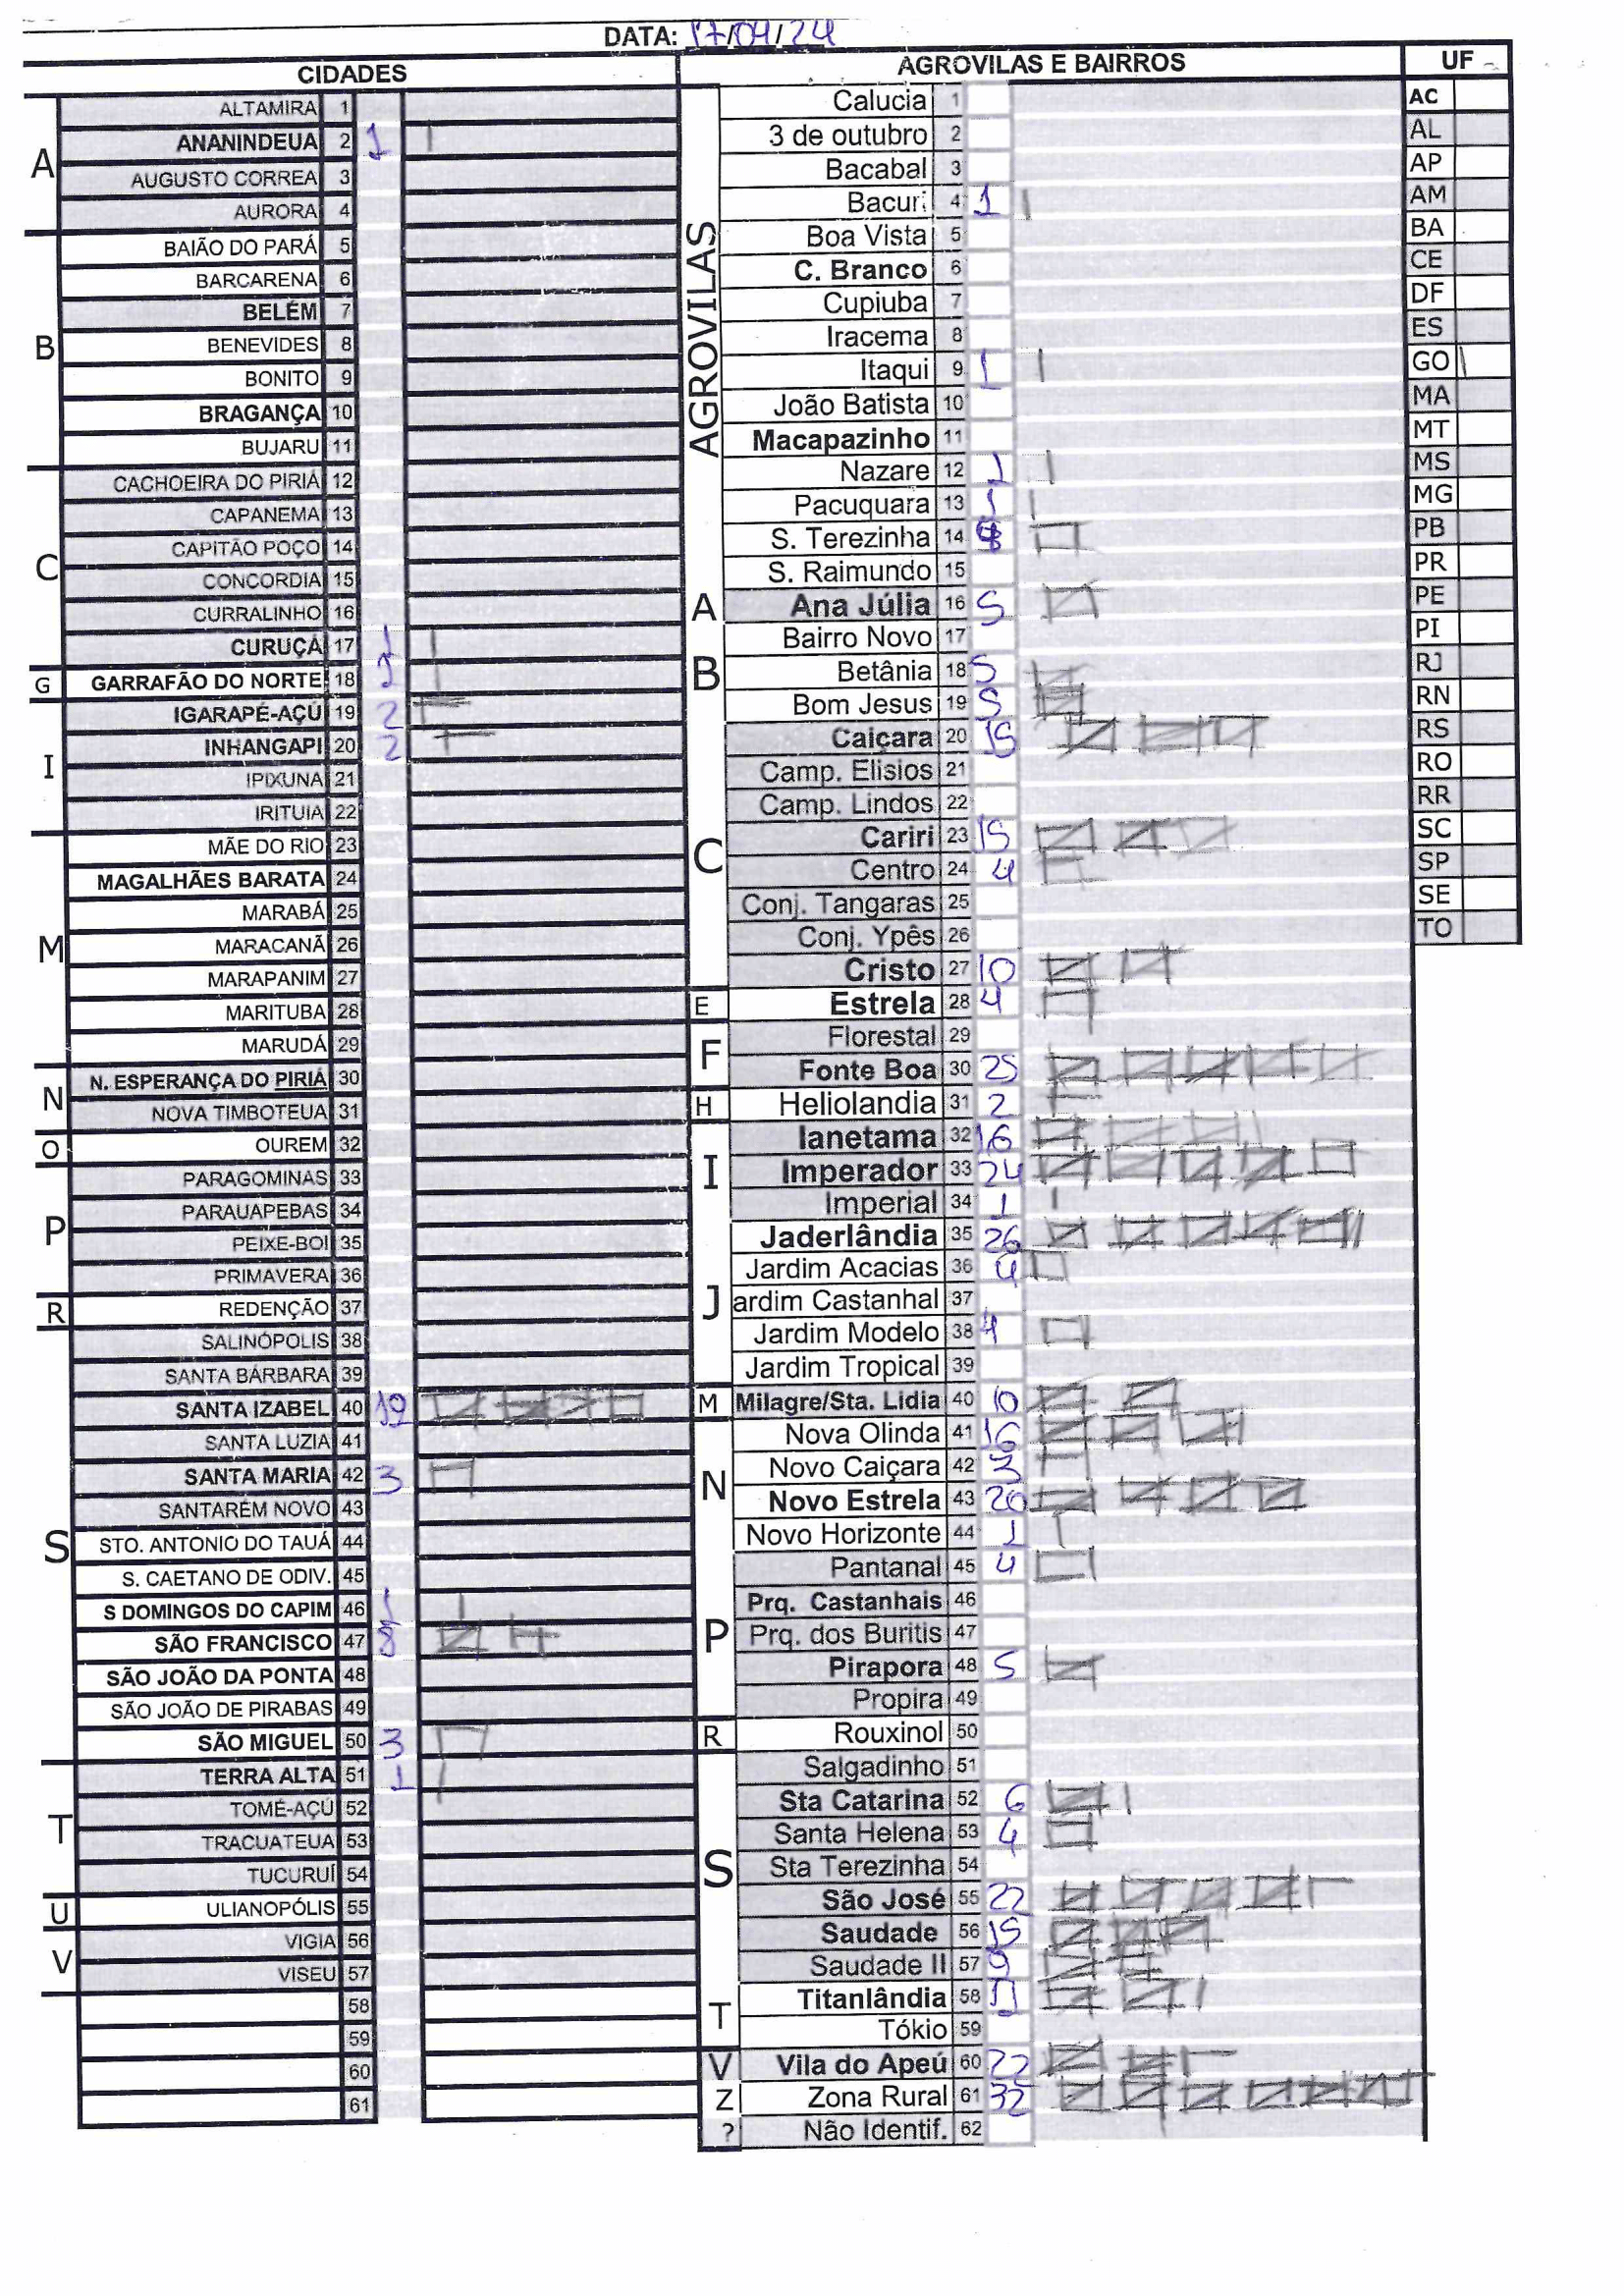 DATA: 17/04/24
CIDADES
A
ALTAMIRA 1
ANANINDEUA 2 1
AUGUSTO CORREA 3
AURORA 4
B
BAIÃO DO PARÁ 5
BARCARENA 6
BELÉM 7
BENEVIDES 8
BONITO 9
BRAGANÇA 10
BUJARU 11
C
CACHOEIRA DO PIRIÁ 12
CAPANEMA 13
CAPITÃO POÇO 14
CONCORDIA 15
CURRALINHO 16
CURUÇÁ 17 1
G
GARRAFÃO DO NORTE 18 1
I
IGARAPÉ-AÇÚ 19 2
INHANGAPI 20 2
IPIXUNA 21
IRITUIA 22
M
MÃE DO RIO 23
MAGALHÃES BARATA 24
MARABÁ 25
MARACANÃ 26
MARAPANIM 27
MARITUBA 28
MARUDÁ 29
N
N. ESPERANÇA DO PIRIÁ 30
NOVA TIMBOTEUA 31
O
OUREM 32
P
PARAGOMINAS 33
PARAUAPEBAS 34
PEIXE-BOI 35
PRIMAVERA 36
R
REDENÇÃO 37
S
SALINÓPOLIS 38
SANTA BÁRBARA 39
SANTA IZABEL 40 19
SANTA LUZIA 41
SANTA MARIA 42 3
SANTARÉM NOVO 43
STO. ANTONIO DO TAUÁ 44
S. CAETANO DE ODIV. 45
S DOMINGOS DO CAPIM 46 1
SÃO FRANCISCO 47 8
SÃO JOÃO DA PONTA 48
SÃO JOÃO DE PIRABAS 49
SÃO MIGUEL 50 3
T
TERRA ALTA 51 1
TOMÉ-AÇÚ 52
TRACUATEUA 53
TUCURUÍ 54
U
ULIANOPÓLIS 55
V
VIGIA 56
VISEU 57
58
59
60
61
AGROVILAS E BAIRROS
AGROVILAS
Calucia 1
3 de outubro 2
Bacabal 3
Bacuri 4 1
Boa Vista 5
C. Branco 6
Cupiuba 7
Iracema 8
Itaqui 9 1
João Batista 10
Macapazinho 11
Nazare 12 1
Pacuquara 13 1
S. Terezinha 14
S. Raimundo 15
A
Ana Júlia 16 5
B
Bairro Novo 17
Betânia 18 5
Bom Jesus 19 5
C
Caiçara 20 15
Camp. Elisios 21
Camp. Lindos 22
Cariri 23 15
Centro 24 4
Conj. Tangaras 25
Conj. Ypês 26
Cristo 27 10
E
Estrela 28 4
F
Florestal 29
Fonte Boa 30 25
H
Heliolandia 31 2
I
Ianetama 32 16
Imperador 33 24
Imperial 34 1
J
Jaderlândia 35 26
Jardim Acacias 36 4
ardim Castanhal 37
Jardim Modelo 38 4
Jardim Tropical 39
M
Milagre/Sta. Lidia 40 10
N
Nova Olinda 41 16
Novo Caiçara 42 3
Novo Estrela 43 20
Novo Horizonte 44 1
P
Pantanal 45 4
Prq. Castanhais 46
Prq. dos Buritis 47
Pirapora 48 5
Propira 49
R
Rouxinol 50
S
Salgadinho 51
Sta Catarina 52 6
Santa Helena 53 4
Sta Terezinha 54
São José 55 22
Saudade 56 15
Saudade II 57 9
T
Titanlândia 58 11
Tókio 59
V
Vila do Apeú 60 22
Z
Zona Rural 61 32
?
Não Identif. 62
UF
AC
AL
AP
AM
BA
CE
DF
ES
GO
MA
MT
MS
MG
PB
PR
PE
PI
RJ
RN
RS
RO
RR
SC
SP
SE
TO